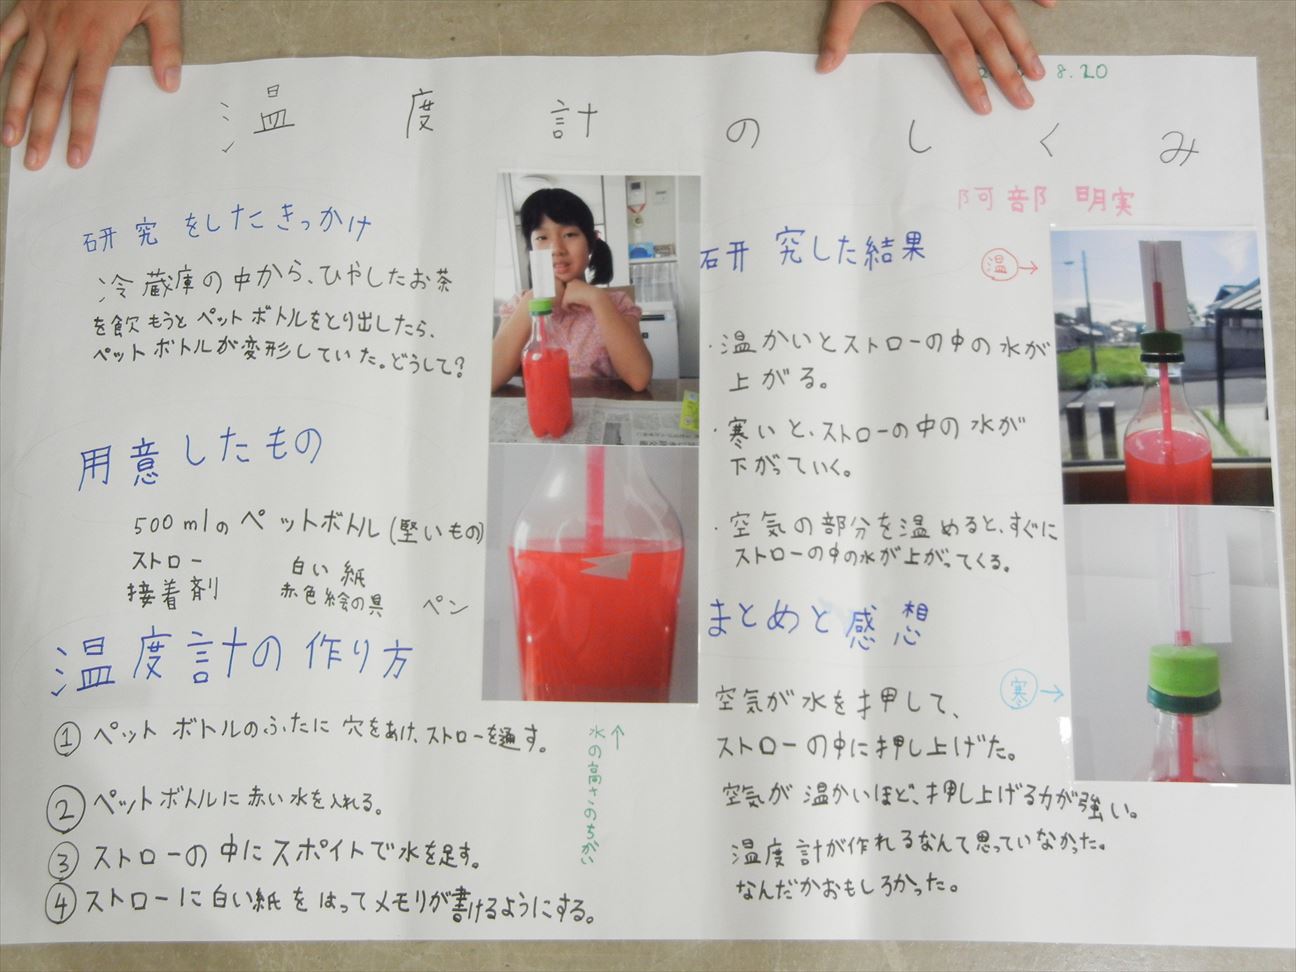 8.20
温度計のしくみ
阿部 明実
研究をしたきっかけ
冷蔵庫の中から、ひやしたお茶
を飲もうとペットボトルをとり出したら、
ペットボトルが変形していた。どうして?
用意したもの
500mlのペットボトル(堅いもの)
ストロー 白い紙
接着剤 赤色絵の具 ペン
温度計の作り方
① ペットボトルのふたに穴をあけ、ストローを通す。
② ペットボトルに赤い水を入れる。
③ ストローの中にスポイトで水を足す。
④ ストローに白い紙をはってメモリが書けるようにする。
↑水の高さのちがい
研究した結果
温→
・温かいとストローの中の水が
上がる。
・寒いと、ストローの中の水が
下がっていく。
・空気の部分を温めると、すぐに
ストローの中の水が上がってくる。
まとめと感想
寒→
空気が水を押して、
ストローの中に押し上げた。
空気が温かいほど、押し上げる力が強い。
温度計が作れるなんて思っていなかった。
なんだかおもしろかった。